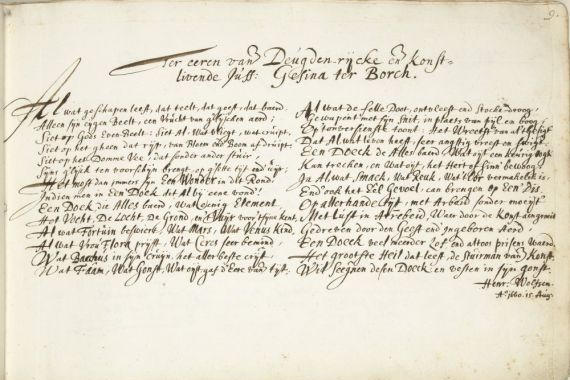 9.
Ter eeren van Deúgden-rijcke en Konst-
livende Juff: Gesina ter Borch.
Al wat geschapen leest, dat teelt, dat geest, dat baerd.
Alleen syn eygen Beelt, een Vrúcht van
Siet op Gods Even-Beelt: Siet Al, Wat vliegt, wat crúipt,
Siet op het gheen dat rijst, van Bloem en Boom af drúipt:
Siet op het Domme Vee, dat sonder ander stúir,
Syns g'lyck ten voorschyn brengt, op tijt en úijr:
Het most dan immers syn Een Wonder in die Rond.
Indien men in Een Doek dit Al by eene vond!
Een Doeck die Alles baerd, Wat eenig Element
Het Vocht, De Locht, De Grond, en 't Vuijr voor syne kent,
Al wat Fortúin beswiert, Wat Mars, Wat Venus kind,
Al wat Vroú Flora prijst, Wat Ceres seer bemind,
Wat Bacchus in syn crúijn, het aller beste crijt,
Wat Faam, Wat Gonst, Wat oijt gaf d'Eere van tijt.
Al wat de felle Doot, ontvleest end Stocke droog,
Gewapent met syn Seit, in plaets van pijl en boog;
Op 't toont: Het Wreetste van
Dat Al wat leven heeft, seer angstig vreest en
Een Doeck de Aller Waerd, Wat oijt een keúrig oogh
Kan trecken, en Wat oijt, het Hert of Sinn' bewoog,
Ja Al wat Smack, Wat Reuk, Wat vermakelik is,
End ook het Eel Gevoel, can brengen op Een Dis.
Op allerhande Wijs, met Arbeid sonder moeijt
Met Lúst in Arrebeid, Waer door de Konst aengroeit
Gedreven door den Geest end Ingeboren Aerd
Een Doeck veel meerder Lof end altoos prijsen Waerd
Het grootste Heil dat leeft, de Stúirman van Konst,
Wil Seegnen desen Doeck en vesten in syn gonst.
Henr: Wolfsen.
A° 1660. 15. Aug.